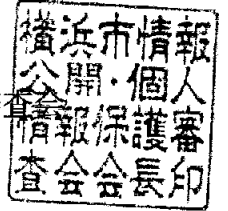 横浜市情報
公開・個人
情報保護審
査会会長印
査会